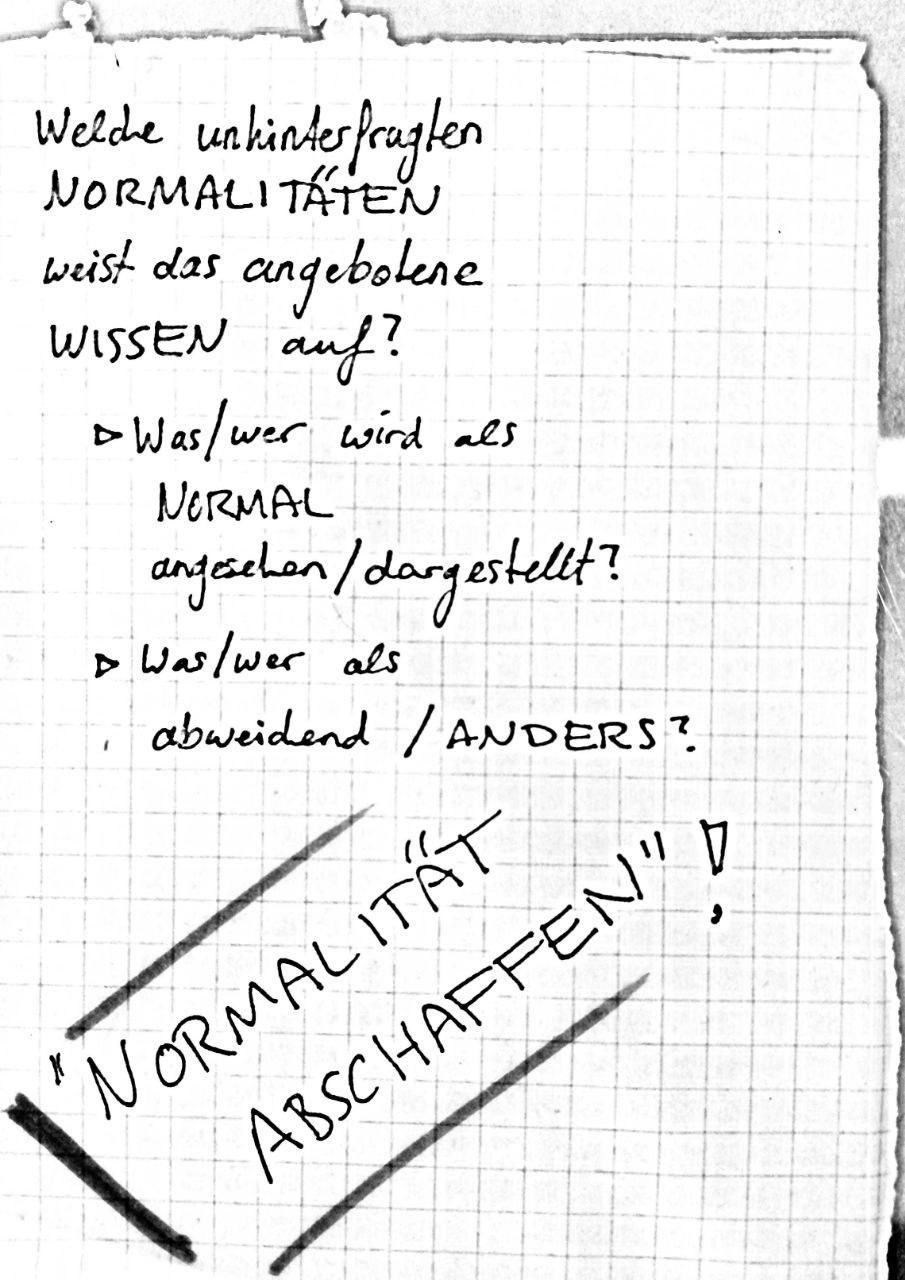 Welche unhinterfragten
NORMALITÄTEN
weist das angebotene
WISSEN auf?
▷ Was/wer wird als
NORMAL
angesehen/dargestellt?
▷ Was/wer als
abweichend / ANDERS?
"NORMALITÄT
ABSCHAFFEN"!